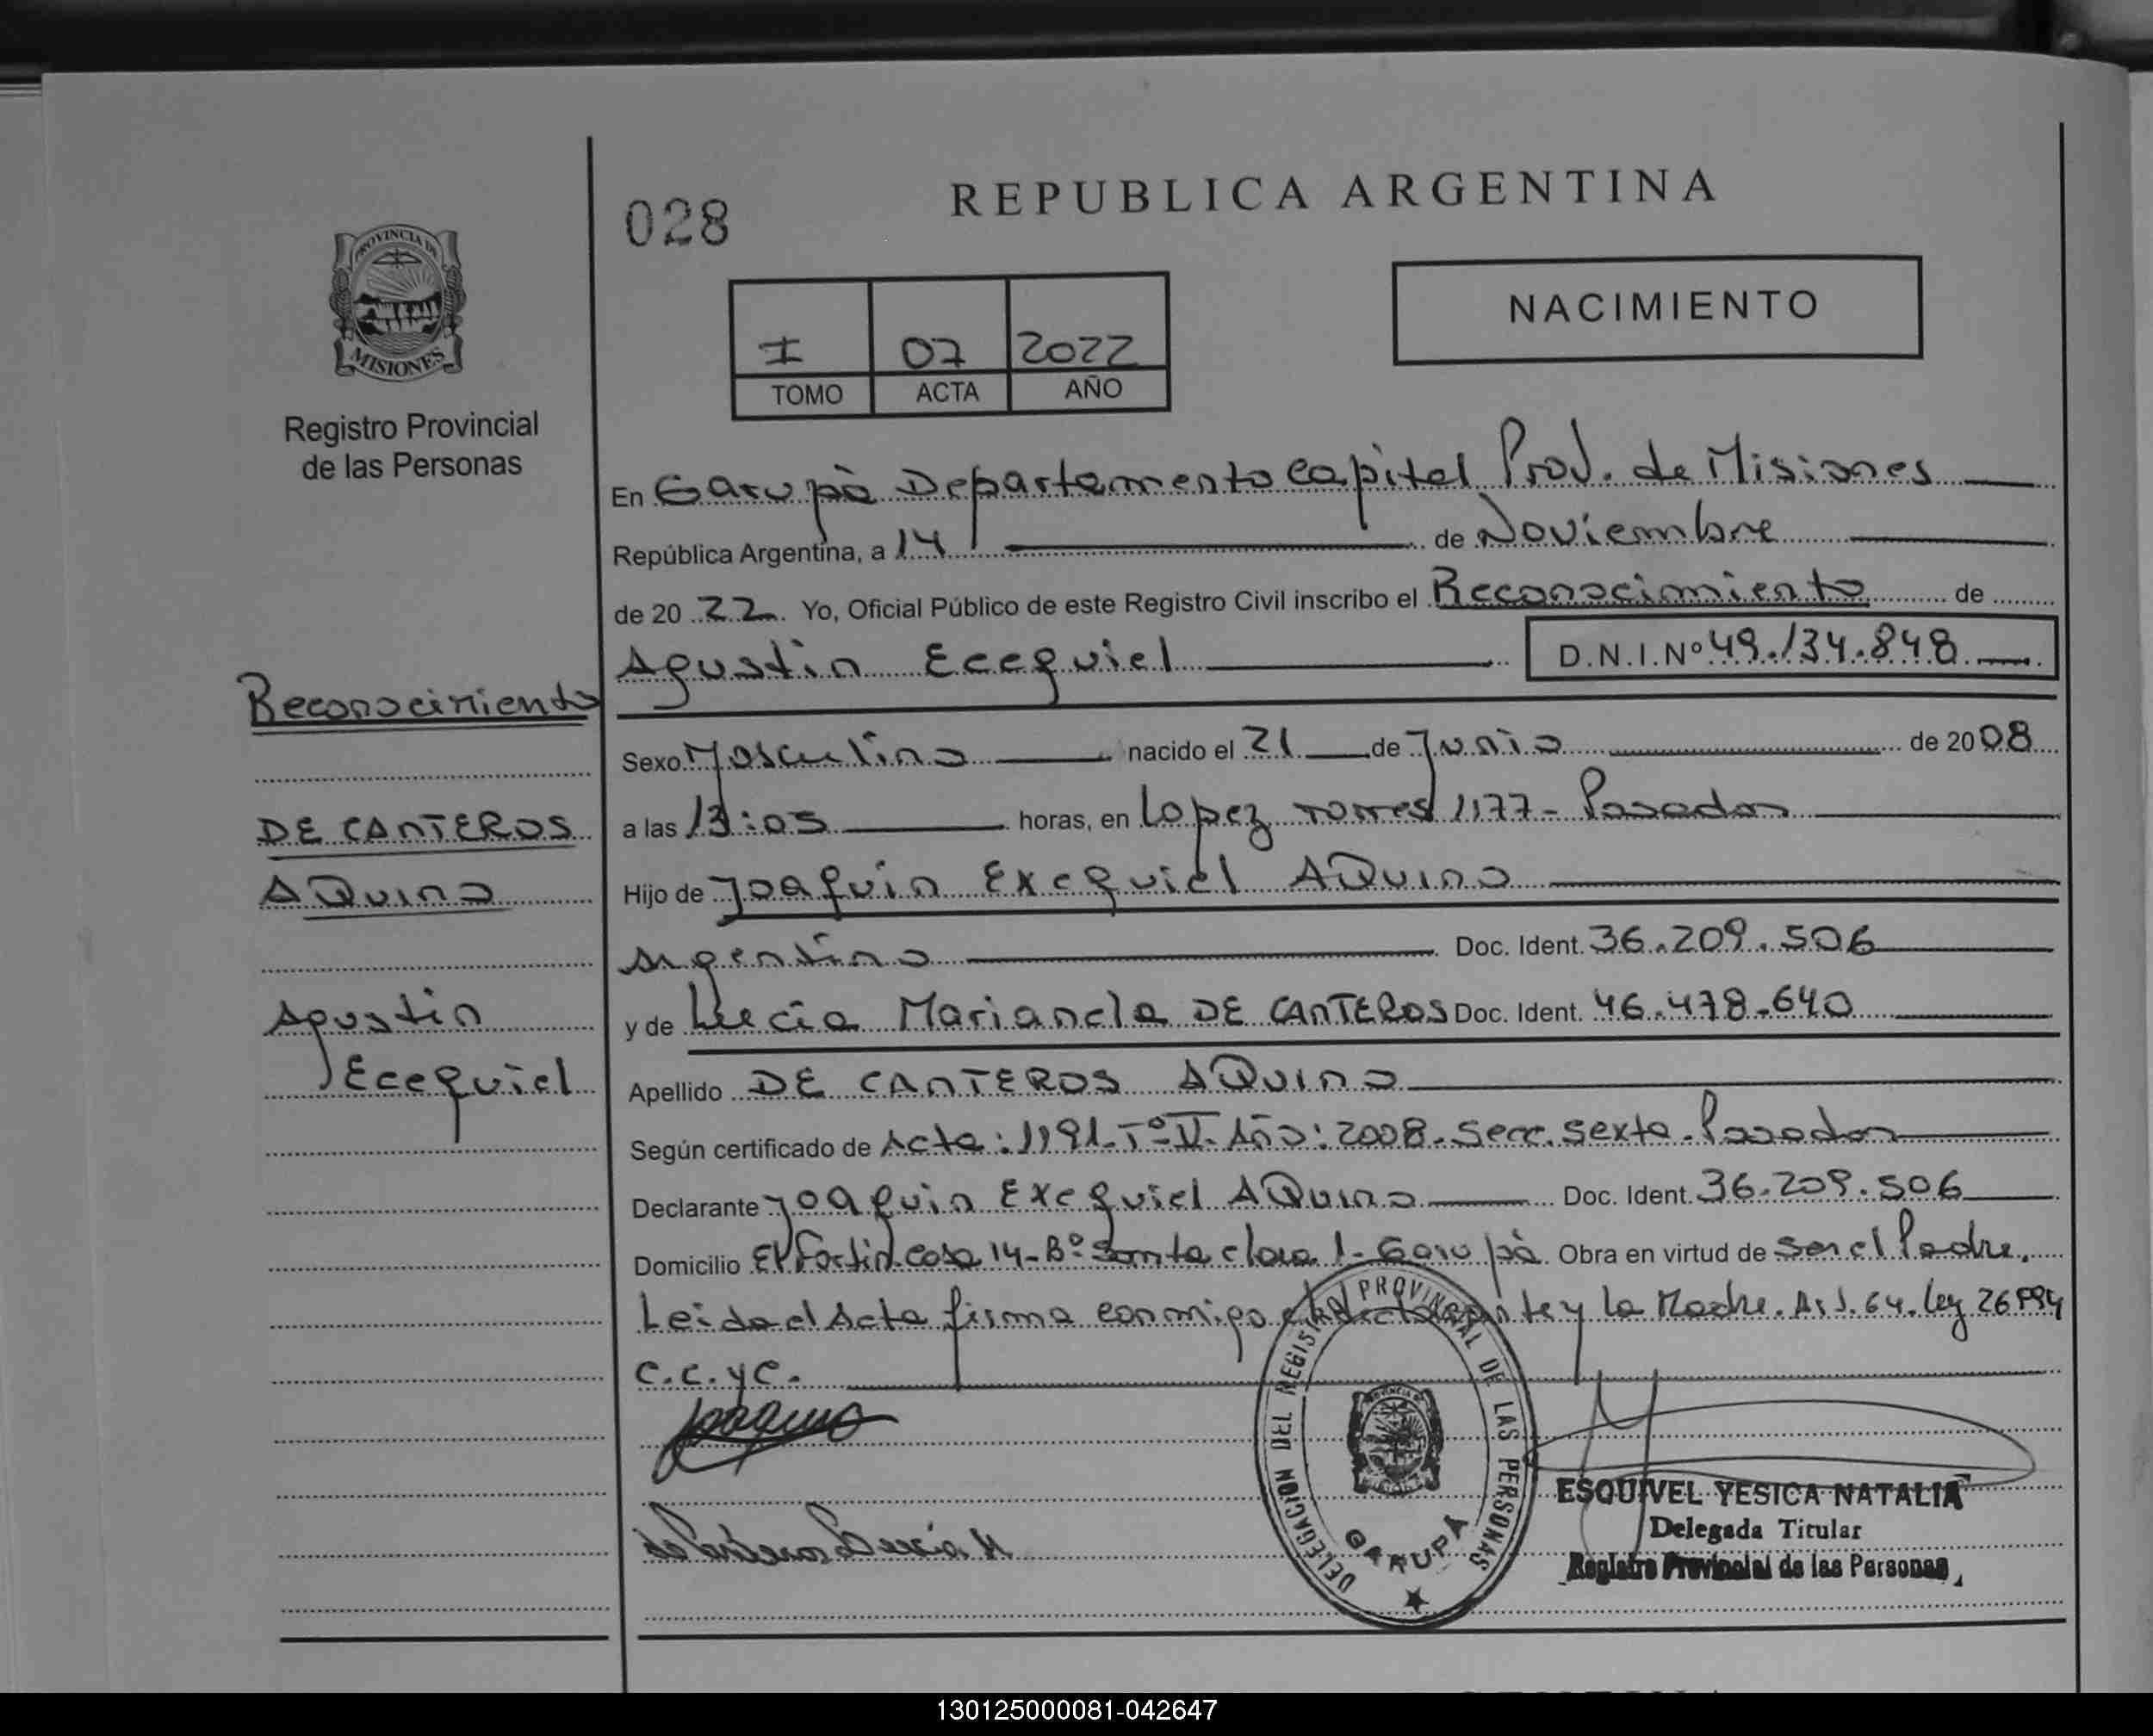 REPUBLICA ARGENTINA
028
PROVINCIA DE
MISIONES
Registro Provincial
de las Personas
NACIMIENTO
I 07 2022
TOMO ACTA AÑO
En Garupà Departamento Capital Prov. de Misiones
República Argentina, a 14 de Noviembre
de 20 22 Yo, Oficial Público de este Registro Civil inscribo el Reconocimiento de
Agustin Ecequiel D.N.I.Nº 49.134.848
Sexo Masculino nacido el 21 de Junio de 20 08
a las 13:05 horas, en Lopez Torres 1177- Posadas
Hijo de Joaquin Exequiel AQuino
Argentino Doc. Ident. 36.209.506
y de Lucia Marianela DE CANTEROS Doc. Ident. 46.478.640
Apellido DE CANTEROS AQuino
Según certificado de Acta: 1191-Tº II- Año: 2008- Secc. Sexta- Posadas
Declarante Joaquin Exequiel AQuino Doc. Ident. 36.209.506
Domicilio El Fortin casa 14-Bº Santa Clara 1- Garupà Obra en virtud de Ser el Padre.
Leida el Acta firma conmigo el declarante y la Madre. Art. 64. Ley 26994
C.C.yC.
Reconocimiento
DE CANTEROS
AQuino
Agustin
Ecequiel
Joaquino
de Canteros Lucía M
DELEGACIÓN DEL REGISTRO PROVINCIAL DE LAS PERSONAS
GARUPÁ
ESQUIVEL YESICA NATALIA
Delegada Titular
Registro Provincial de las Personas
130125000081-042647